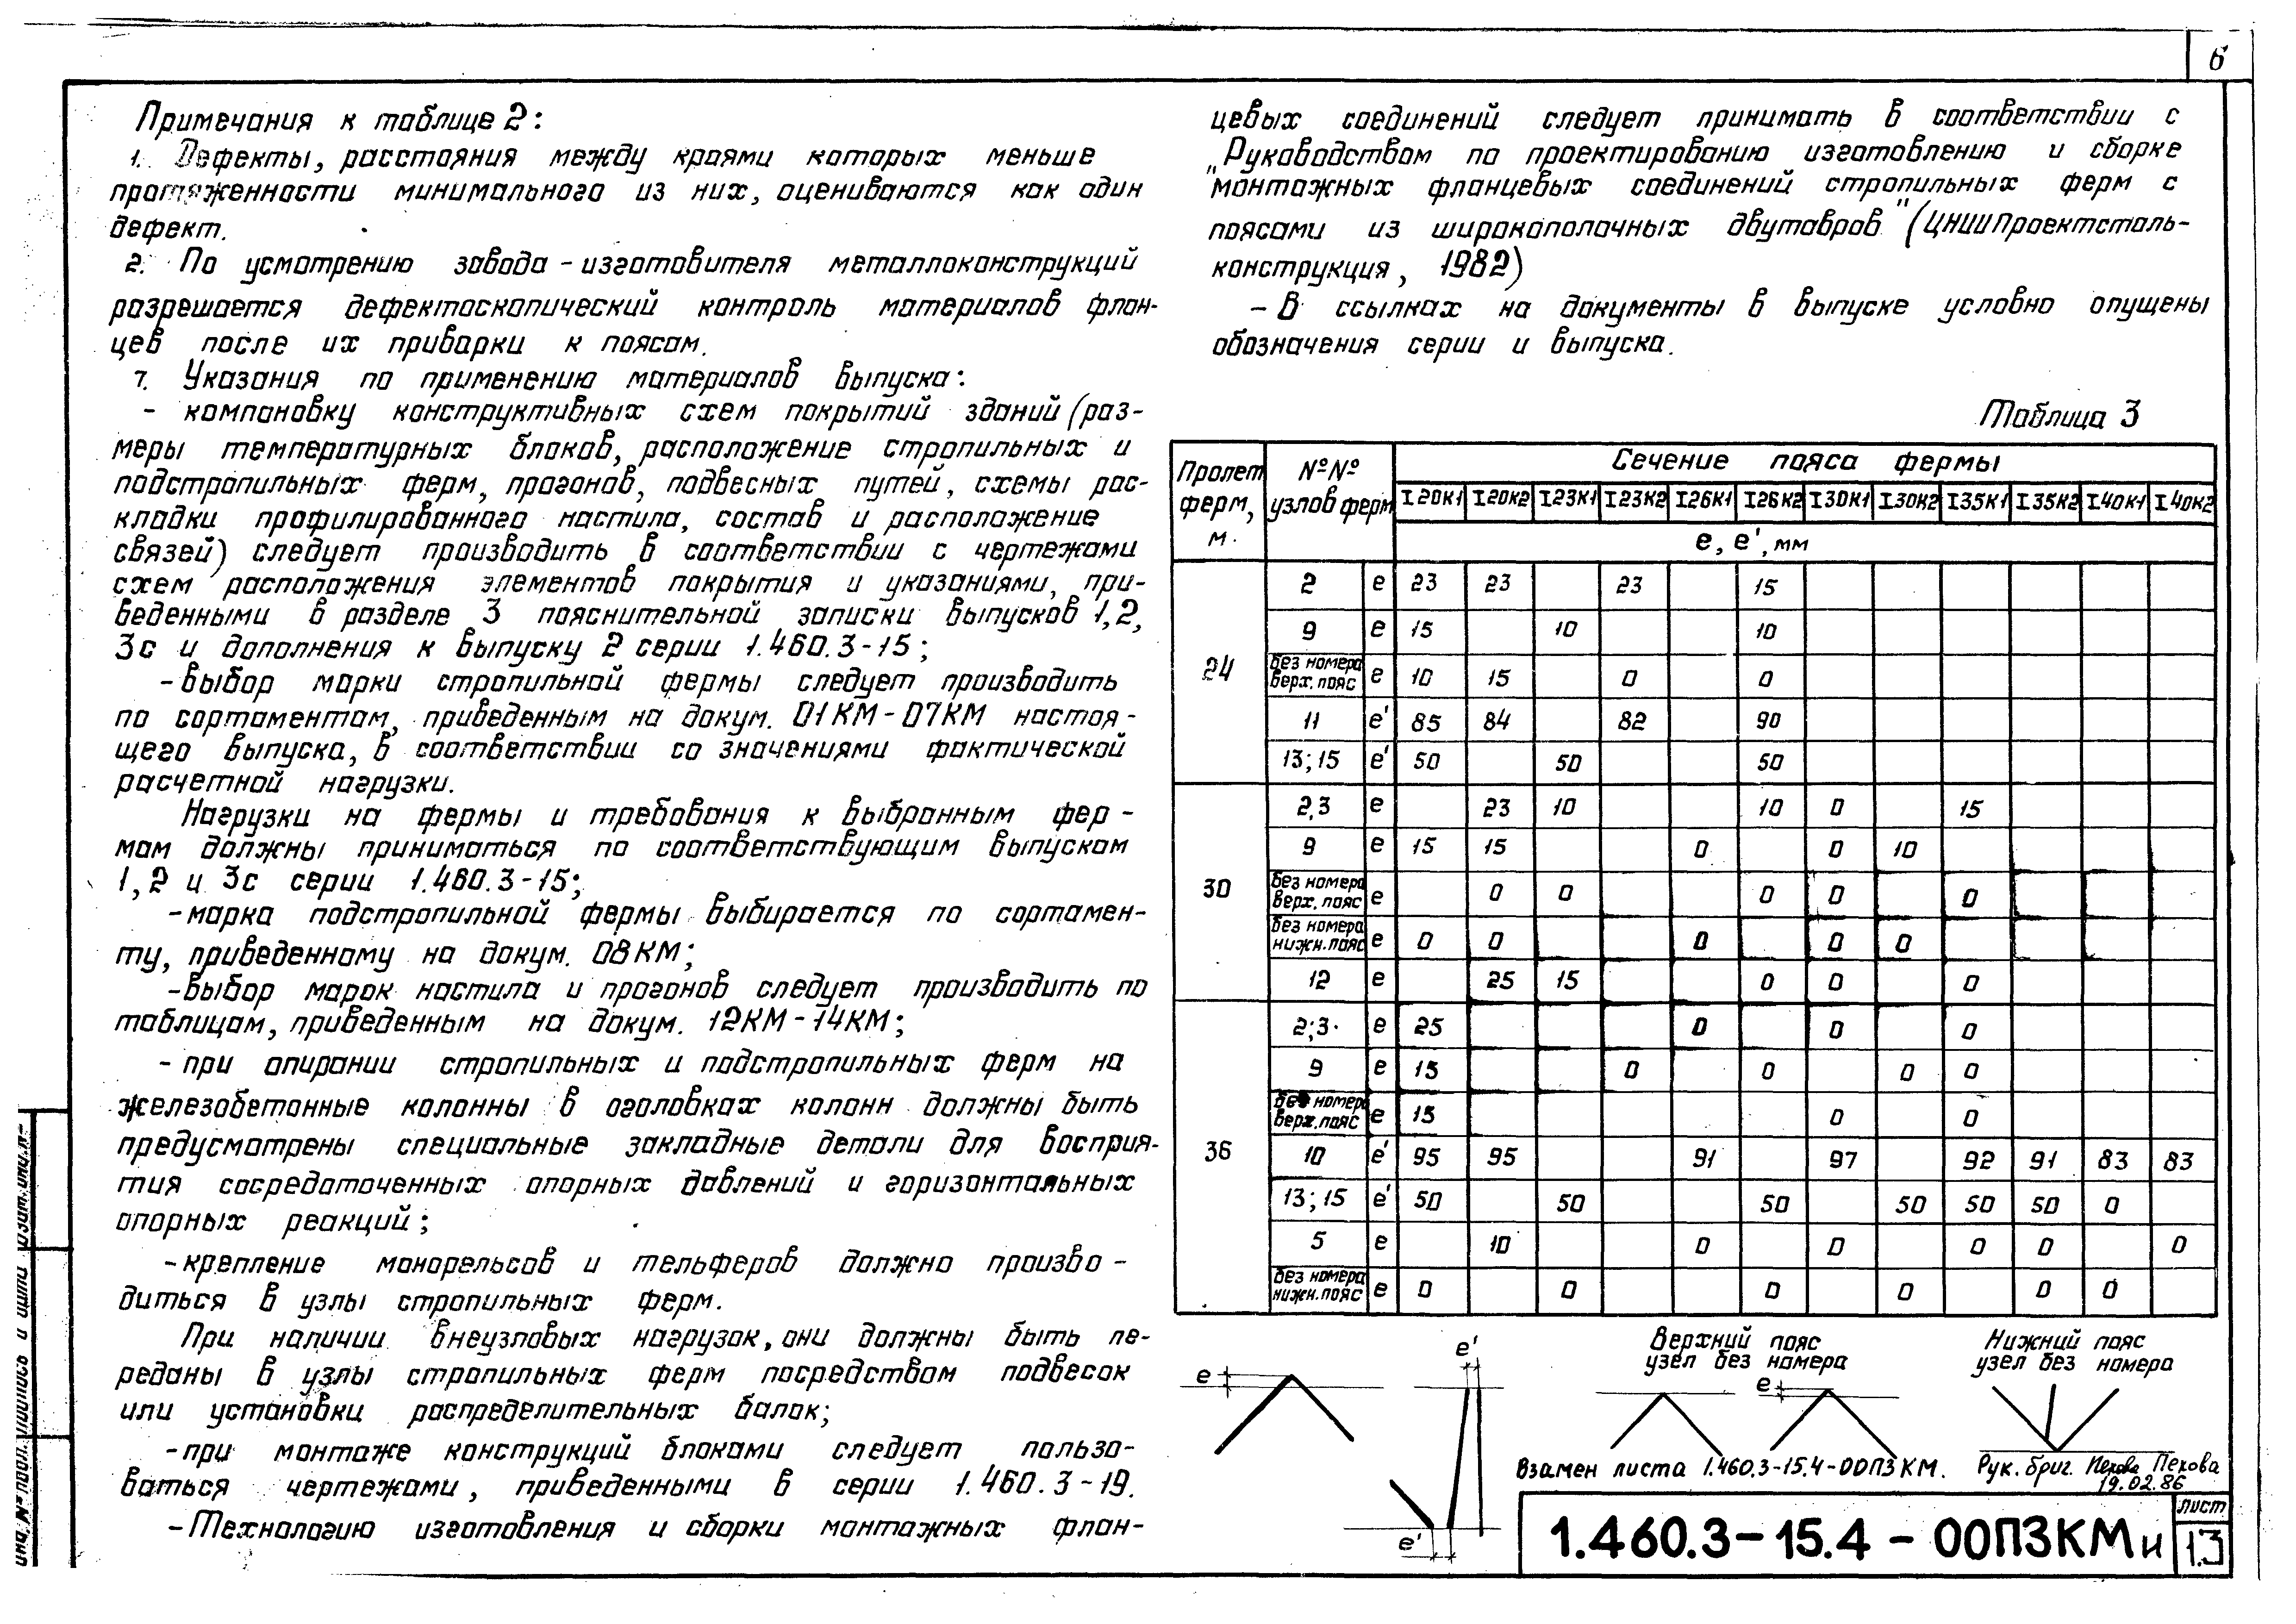 6
Примечания к таблице 2:
1. Дефекты, расстояния между краями которых меньше
протяженности минимального из них, оцениваются как один
дефект.
2. По усмотрению завода-изготовителя металлоконструкций
разрешается дефектоскопический контроль материалов флан-
цев после их приварки к поясам.
7. Указания по применению материалов выпуска:
- компановку конструктивных схем покрытий зданий (раз-
меры температурных блоков, расположение стропильных и
подстропильных ферм, прогонов, подвесных путей, схемы рас-
кладки профилированного настила, состав и расположение
связей) следует производить в соответствии с чертежами
схем расположения элементов покрытия и указаниями, при-
веденными в разделе 3 пояснительной записки выпусков 1,2,
3с и дополнения к выпуску 2 серии 1.460.3-15;
- выбор марки стропильной фермы следует производить
по сортаментам, приведенным на докум. 01КМ-07КМ настоя-
щего выпуска, в соответствии со значениями фактической
расчетной нагрузки.
Нагрузки на фермы и требования к выбранным фер-
мам должны приниматься по соответствующим выпускам
1,2 и 3с серии 1.460.3-15;
- марка подстропильной фермы выбирается по сортамен-
ту, приведенному на докум. 08КМ;
- выбор марок настила и прогонов следует производить по
таблицам, приведенным на докум. 12КМ-14КМ;
- при опирании стропильных и подстропильных ферм на
железобетонные колонны в оголовках колонн должны быть
предусмотрены специальные закладные детали для восприя-
тия сосредоточенных опорных давлений и горизонтальных
опорных реакций;
- крепление монорельсов и тельферов должно произво-
диться в узлы стропильных ферм.
При наличии внеузловых нагрузок, они должны быть пе-
реданы в узлы стропильных ферм посредством подвесок
или установки распределительных балок;
- при монтаже конструкций блоками следует пользо-
ваться чертежами, приведенными в серии 1.460.3-19.
- Технологию изготовления и сборки монтажных флан-
цевых соединений следует принимать в соответствии с
"Руководством по проектированию изготовлению и сборке
монтажных фланцевых соединений стропильных ферм с
поясами из широкополочных двутавров" (ЦНИИПроектсталь-
конструкция, 1982)
- В ссылках на документы в выпуске условно опущены
обозначения серии и выпуска.
Таблица 3
Пролет ферм, м. №№ узлов ферм Сечение пояса фермы
I20К1 I20К2 I23К1 I23К2 I26К1 I26К2 I30К1 I30К2 I35К1 I35К2 I40К1 I40К2
е, е', мм
24
2 е 23 23 23 15
9 е 15 10 10
без номера верх. пояс е 10 15 0 0
11 е' 85 84 82 90
13; 15 е' 50 50 50
30
2,3 е 23 10 10 0 15
9 е 15 15 0 0 10
без номера верх. пояс е 0 0 0 0 0
без номера нижн. пояс е 0 0 0 0 0
12 е 25 15 0 0 0
36
2;3 е 25 0 0 0
9 е 15 0 0 0 0
без номера верх. пояс е 15 0 0
10 е' 95 95 91 97 92 91 83 83
13; 15 е' 50 50 50 50 50 50 0
5 е 10 0 0 0 0 0
без номера нижн. пояс е 0 0 0 0 0 0
е
е'
е'
Верхний пояс
узел без номера
е
Нижний пояс
узел без номера
Взамен листа 1.460.3-15.4-00ПЗКМ. Рук. бриг. Перова Перова
19.02.86
1.460.3-15.4-00ПЗКМи
Лист
1.3
Инв. № подл. Подпись и дата Взам. инв. №